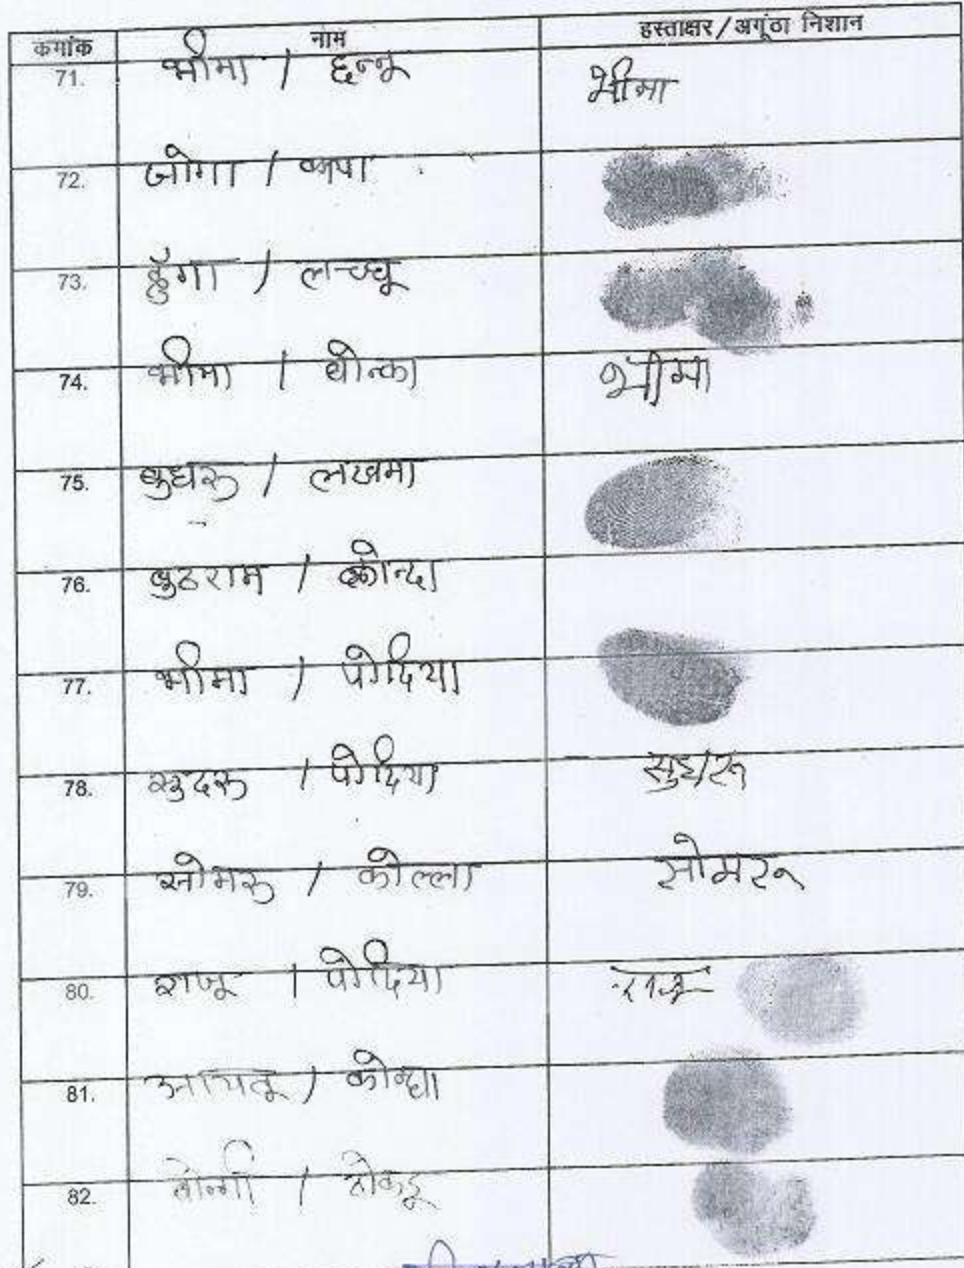 कमांक नाम हस्ताक्षर/अगूंठा निशान
71. भीमा / छन्नू भीमा
72. जोगा / कापा
73. हुँगा / लच्छू
74. भीमा / भीमा
75. बुधरू / लखमा
76. बुठराम / कोन्दा
77. भीमा / पोदिया
78. सुदरू / पोदिया सुदरू
79. सोमरू / कोल्ला सोमरू
80. राजू / पोदिया राजू
81. आयतू /
82.